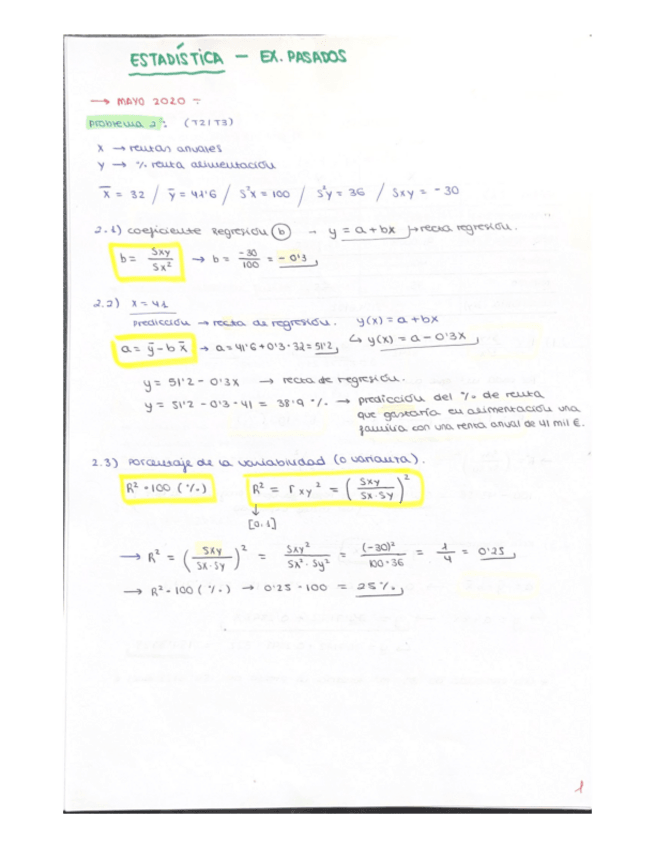 ESTADÍSTICA - EX. PASADOS
→ MAYO 2020 :
Problema 2º: (T2/T3)
x → rentas anuales
y → % renta alimentación
x̄ = 32 / ȳ = 41'6 / S²x = 100 / S²y = 36 / Sxy = -30
2.1) coeficiente Regresión (b) → y = a + bx → recta regresión.
b = Sxy / Sx² → b = -30 / 100 = -0'3
2.2) x = 41
Predicción → recta de regresión. y(x) = a + bx
a = ȳ - b x̄ → a = 41'6 + 0'3 · 32 = 51'2 ↳ y(x) = a - 0'3x
y = 51'2 - 0'3x → recta de regresión.
y = 51'2 - 0'3 · 41 = 38'9 % → predicción del % de renta
que gastaría en alimentación una
familia con una renta anual de 41 mil €.
2.3) Porcentaje de la variabilidad (o varianza).
R² · 100 (%) R² = r xy ² = (Sxy / Sx · Sy)²
↓
[0,1]
→ R² = (Sxy / Sx · Sy)² = Sxy² / Sx² · Sy² = (-30)² / 100 · 36 = 1 / 4 = 0'25
→ R² · 100 (%) → 0'25 · 100 = 25%
1